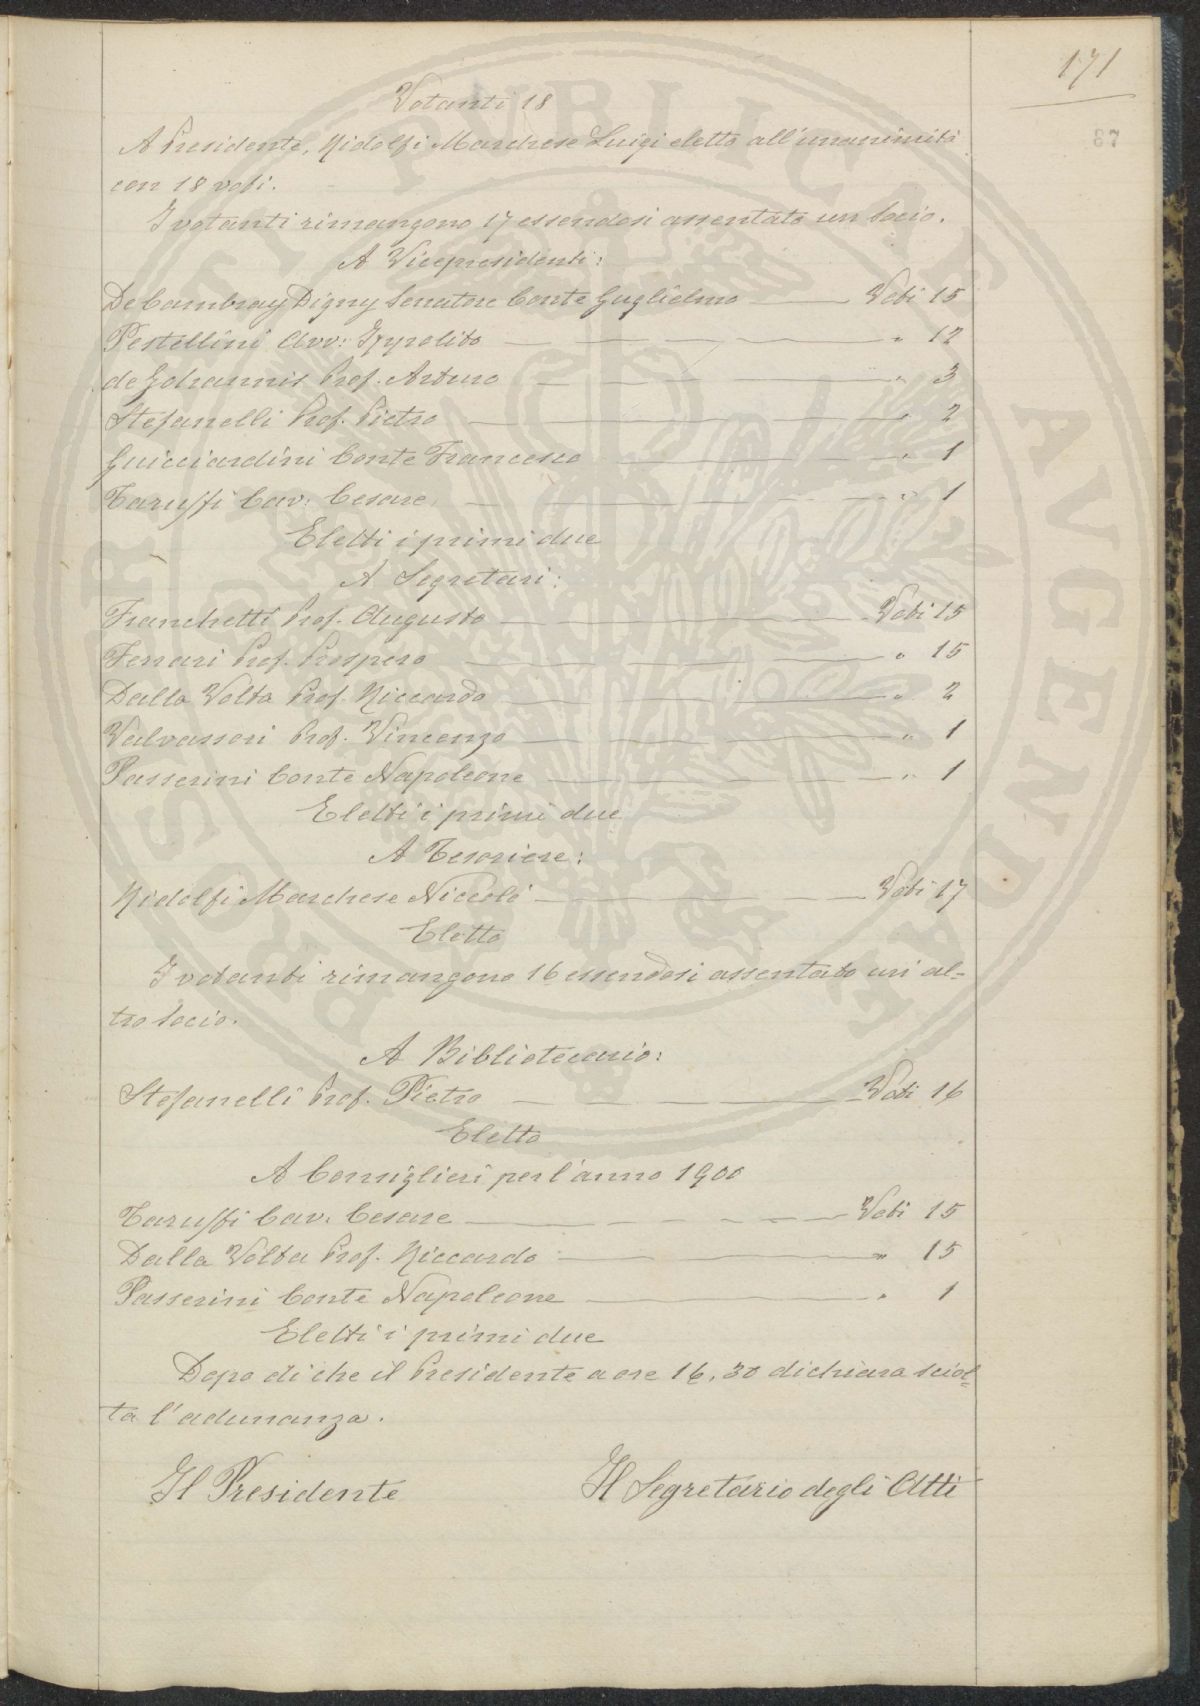 171
67
Votanti 18
A Presidente, Ridolfi Marchese Luigi eletto all'unanimità
con 18 voti.
I votanti rimangono 17 essendosi assentato un Socio.
A Vicepresidenti:
De Cambray Digny Senatore Conte Guglielmo — Voti 15
Pestellini Avv: Ippolito — " 12
de Johannis Prof. Arturo — " 3
Stefanelli Prof. Pietro — " 2
Guicciardini Conte Francesco — " 1
Taruffi Cav: Cesare — " 1
Eletti i primi due
A Segretari:
Franchetti Prof. Augusto — Voti 15
Ferrari Prof. Prospero — " 15
Dalla Volta Prof. Riccardo — " 2
Valvassori Prof. Vincenzo — " 1
Passerini Conte Napoleone — " 1
Eletti i primi due
A Tesoriere:
Ridolfi Marchese Niccolò — Voti 17
Eletto
I votanti rimangono 16 essendosi assentato un'al=
tro Socio.
A Bibliotecario:
Stefanelli Prof. Pietro — Voti 16
Eletto
A Consiglieri per l'anno 1900
Taruffi Cav: Cesare — Voti 15
Dalla Volta Prof. Riccardo — " 15
Passerini Conte Napoleone — " 1
Eletti i primi due
Dopo di che il Presidente a ore 16,30 dichiara sciol=
ta l'adunanza.
Il Presidente Il Segretario degli Atti
PROSPERITATI PUBLICAE AUGENDAE